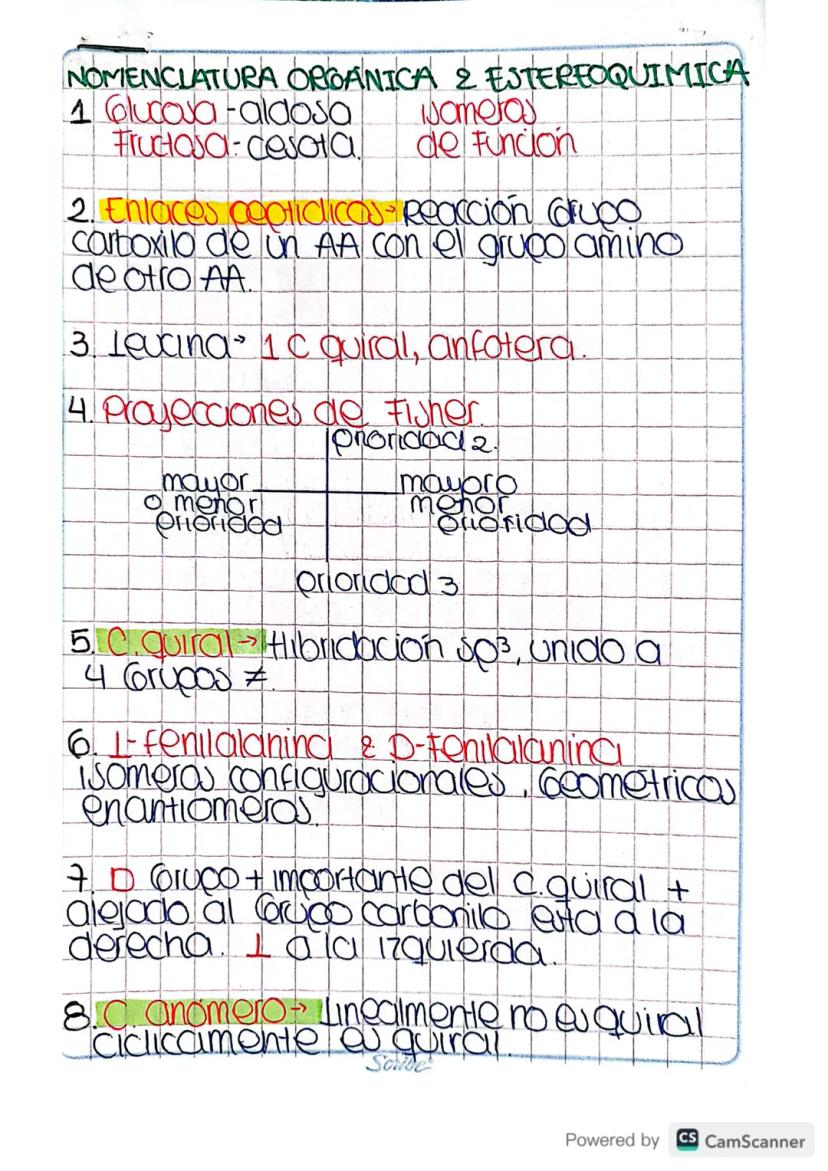 NOMENCLATURA ORGÁNICA & ESTEREOQUIMICA
1 Glucosa - aldosa isomeros
Fructosa - cesota. de Función
2. Enlaces peptidicos → Reacción Grupo
carboxilo de un AA con el grupo amino
de otro AA.
3. Leucina → 1 C quiral, anfotera.
4. Proyecciones de Fisher.
prioridad 2.
mayor mayor o
o menor menor
prioridad prioridad
prioridad 3
5. C. quiral → Hibridación sp³, unido a
4 Grupos ≠.
6. L-fenilalanina & D-Fenilalanina
isomeros configuracionales, Geometricos
enantiomeros.
7. D Grupo + importante del C. quiral +
alejado al Grupo carbonilo esta a la
derecha. L a la izquierda.
8. C. anómero → Linealmente no es quiral
ciclicamente es quiral.
Scribe
Powered by CS CamScanner